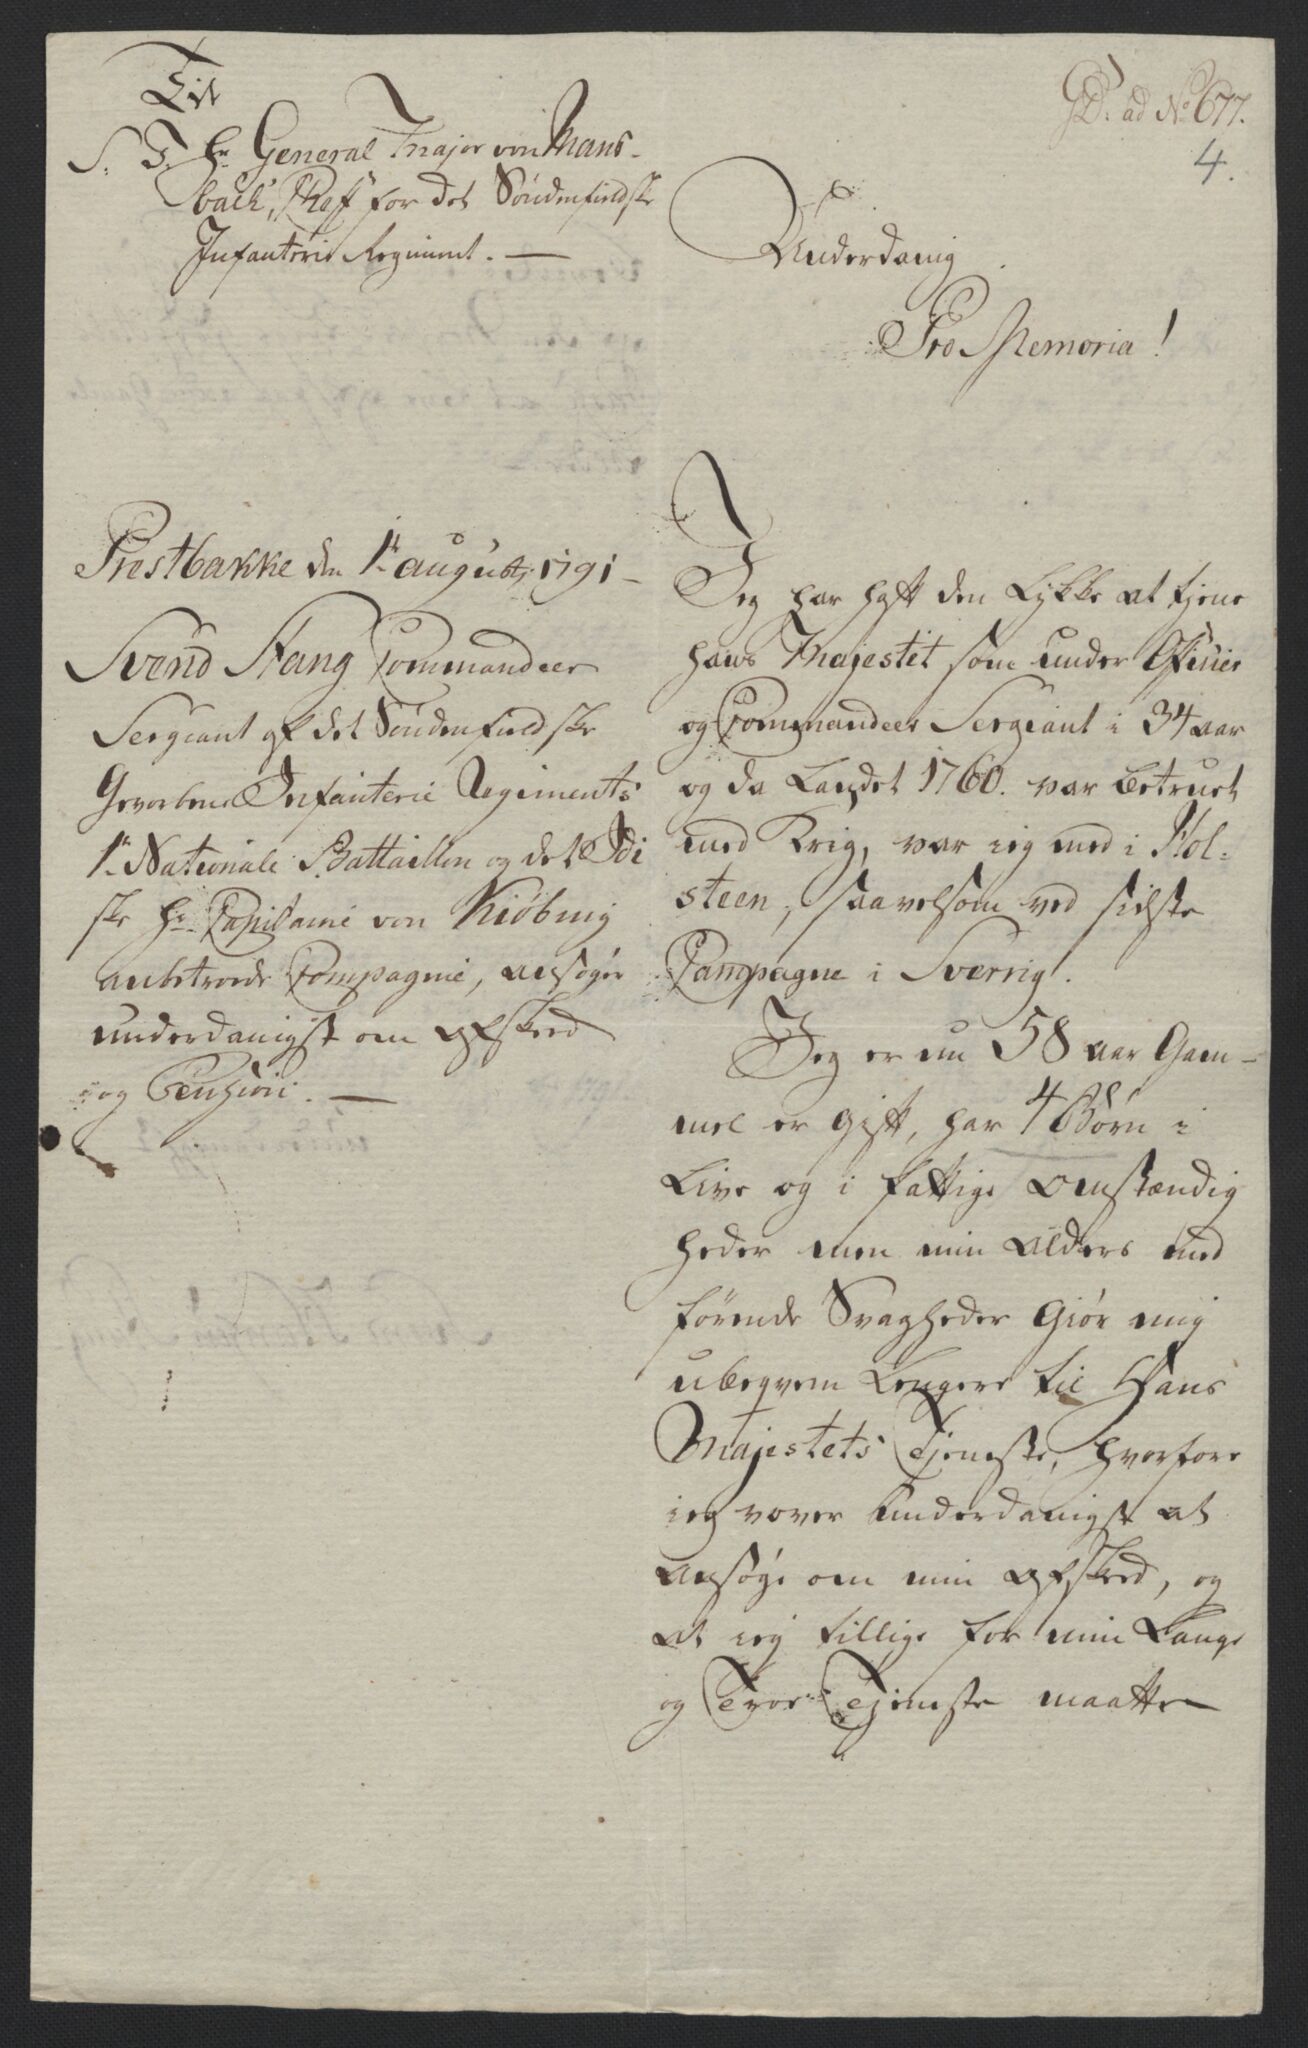 GD. ad No 677.
4.
Til
S. T. Hr General Major von Mans-
bach, Chef for det Søndenfieldske
Infanterie Regiment. —
Underdanig
Pro Memoria!
Prestbakke den 1te augusti 1791 -
Svend Stang Commandeer
Sergiant af det Søndenfieldske
Gevorbene Infanterie Regiments
1te Nationale Battaillon og det Idi
ske Hr Capitaine von Kiöbing
anbetroede Compagnie, ansøger
underdanigst om afskeed
og Pension. —
Jeg har haft den Lykke at tjene
hans Majestet som under Officier
og Commandeer Sergiant i 34 aar
og da Landet 1760. var betruet
med Krig, var ieg med i Hol-
steen, saavelsom ved sidste
Campagne i Sverrig.
Jeg er nu 58 aar Gam-
mel er gift, har 4 Børn i
Live og i fattige omstændig
heder men min alders med
førende Svagheder Giør mig
ubeqvem Lengere til Hans
Majestets Tjeneste, hvorfore
ieg vover underdanigst at
ansøge om min afskeed, og
at ieg tillige for min Lange
og Troe Tjeneste maatte